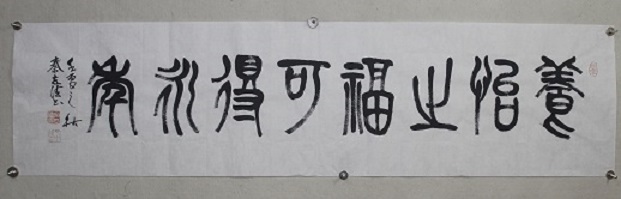 養怡之福可得永年